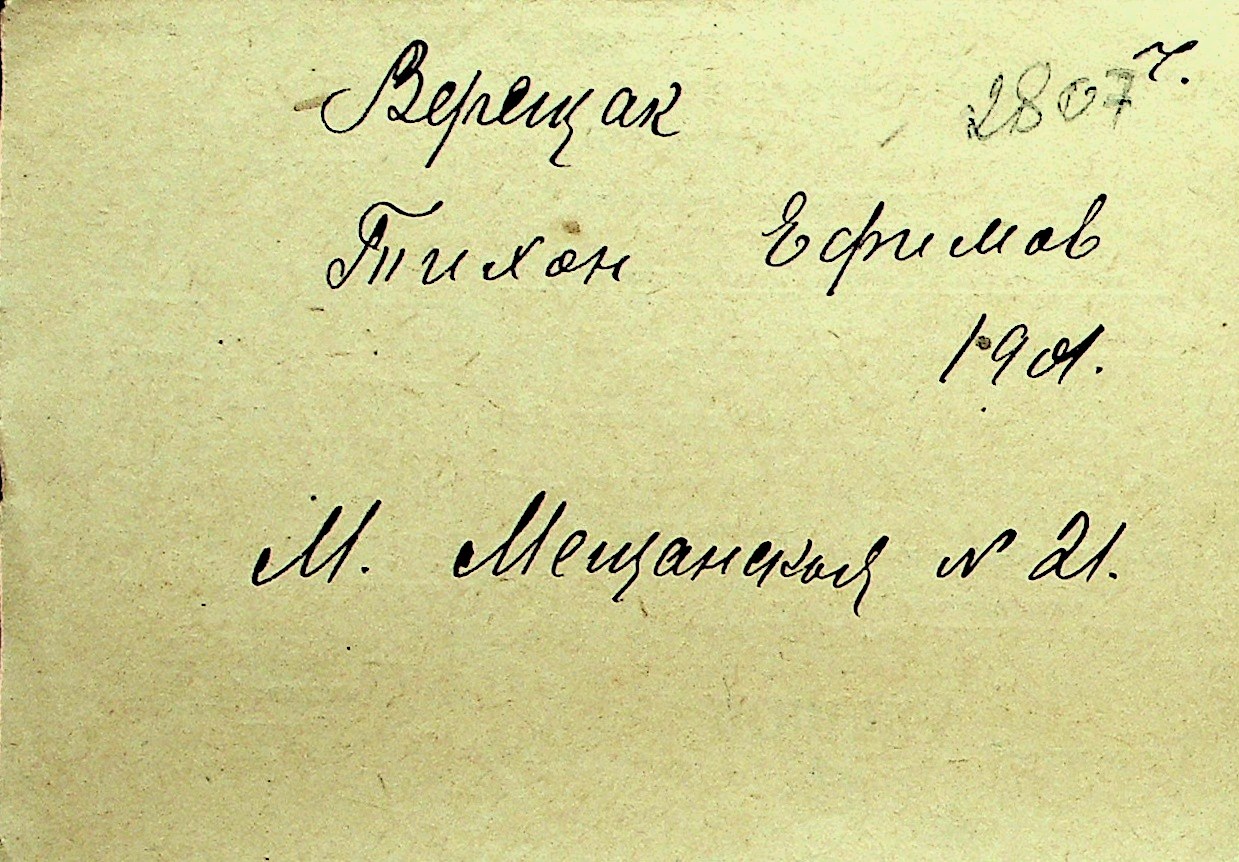 Верещак 2807 ч.
Тихон Ефимов
1901.
М. Мещанская № 21.